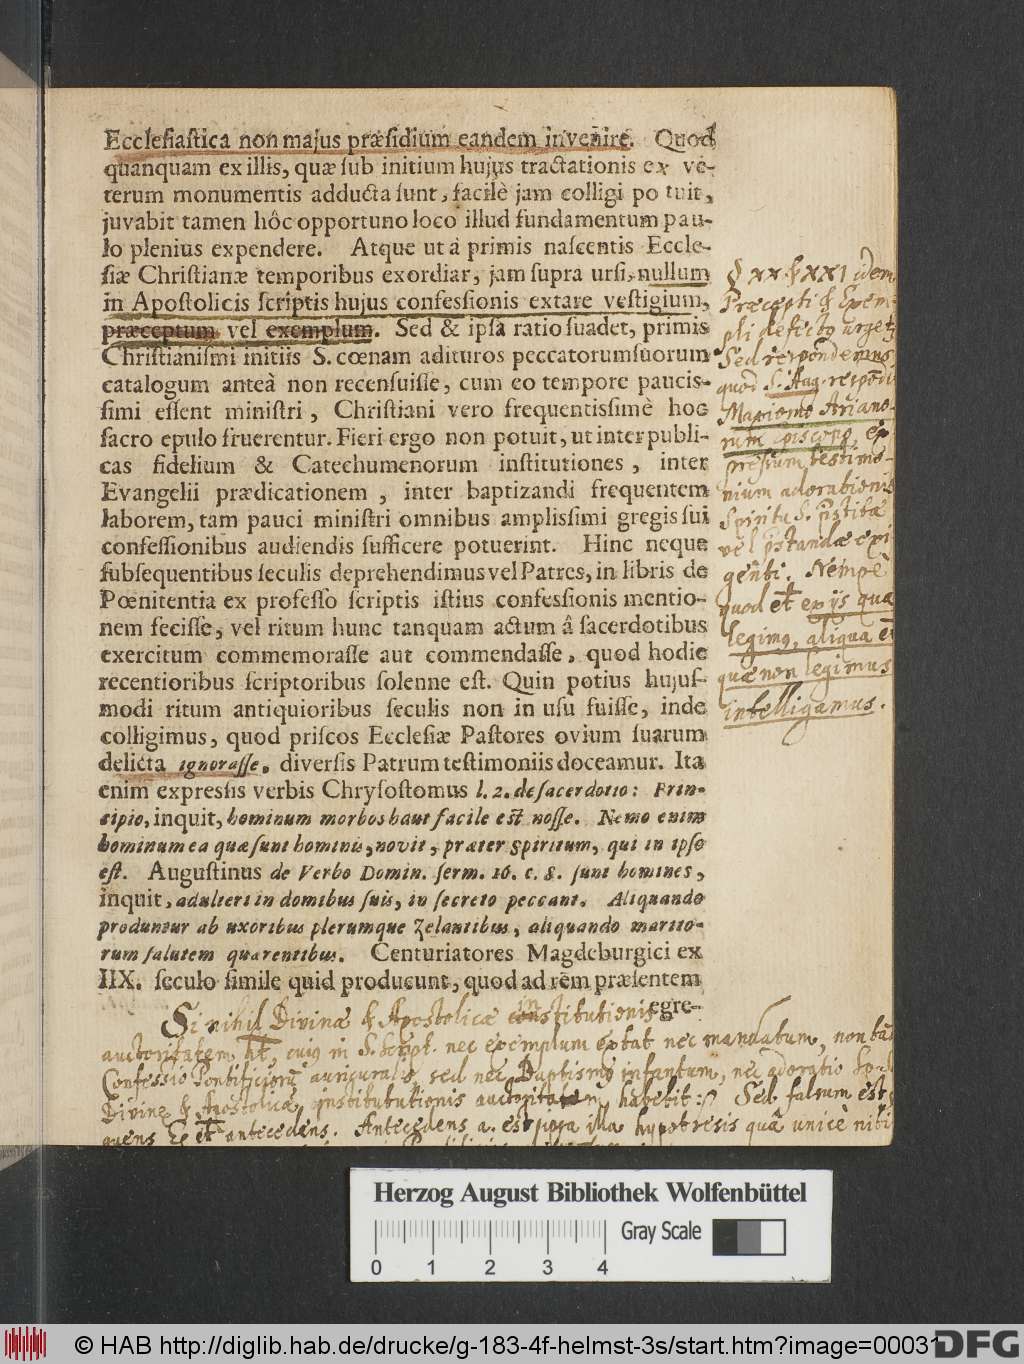 Ecclesiastica non majus præsidium eandem invenire. Quod
quanquam ex illis, quæ sub initium hujus tractationis ex ve-
terum monumentis adducta sunt, facilè jam colligi potuit,
juvabit tamen hôc opportuno loco illud fundamentum pau-
lo plenius expendere. Atque ut à primis nascentis Eccle-
siæ Christianæ temporibus exordiar, jam supra ursi, nullum
in Apostolicis scriptis hujus confessionis extare vestigium,
præceptum vel exemplum. Sed & ipsa ratio suadet, primis
Christianismi initiis S. cœnam adituros peccatorum suorum
catalogum anteà non recensuisse, cum eo tempore paucis-
simi essent ministri, Christiani vero frequentissimè hoc
sacro epulo fruerentur. Fieri ergo non potuit, ut inter publi-
cas fidelium & Catechumenorum institutiones, inter
Evangelii prædicationem, inter baptizandi frequentem
laborem, tam pauci ministri omnibus amplissimi gregis sui
confessionibus audiendis sufficere potuerint. Hinc neque
subsequentibus seculis deprehendimus vel Patres, in libris de
Pœnitentia ex professo scriptis istius confessionis mentio-
nem fecisse, vel ritum hunc tanquam actum â sacerdotibus
exercitum commemorasse aut commendasse, quod hodie
recentioribus scriptoribus solenne est. Quin potius hujus-
modi ritum antiquioribus seculis non in usu fuisse, inde
colligimus, quod priscos Ecclesiæ Pastores ovium suarum
delicta ignorasse, diversis Patrum testimoniis doceamur. Ita
enim expressis verbis Chrysostomus l. 2. de sacerdotio: Prin-
cipio, inquit, hominum morbos haut facile est nosse. Nemo enim
hominum ea quæ sunt hominis, novit, præter Spiritum, qui in ipso
est. Augustinus de Verbo Domin. serm. 16. c. 8. sunt homines,
inquit, adulteri in domibus suis, in secreto peccant. Aliquando
produntur ab uxoribus plerumque Zelantibus, aliquando marito-
rum salutem quærentibus. Centuriatores Magdeburgici ex
IIX. seculo simile quid producunt, quod ad rēm præsentem
egre-
§ XX & XXI idem
Præcepti & Exem-
pli defectus urget
Sed respondemus
quod S. Aug. respondi
Maximo Ariano-
rum episcopo, ex
pressum testimo-
nium adorationis
Spiritu S.
vel præstandæ exi
genti. Nempe
quod et ex ijs quæ
legimus, aliqua et
quæ non legimus
intelligamus.
Si nihil Divinæ & Apostolicæ institutionis
auctoritatem ht, cujus in S. Script. nec exemplum extat nec mandatum, non tā
Confessio Pontificiorū auricularis, sed nec Baptismus infantum, nec adoratio
Divinæ & Apostolicæ institutionis auctoritatem habebit. Sed falsum est
quens E. et antecedens. Antecedens a. est ipsa illa hypothesis quā unicè
Herzog August Bibliothek Wolfenbüttel
0 1 2 3 4
Gray Scale
© HAB http://diglib.hab.de/drucke/g-183-4f-helmst-3s/start.htm?image=00031
DFG